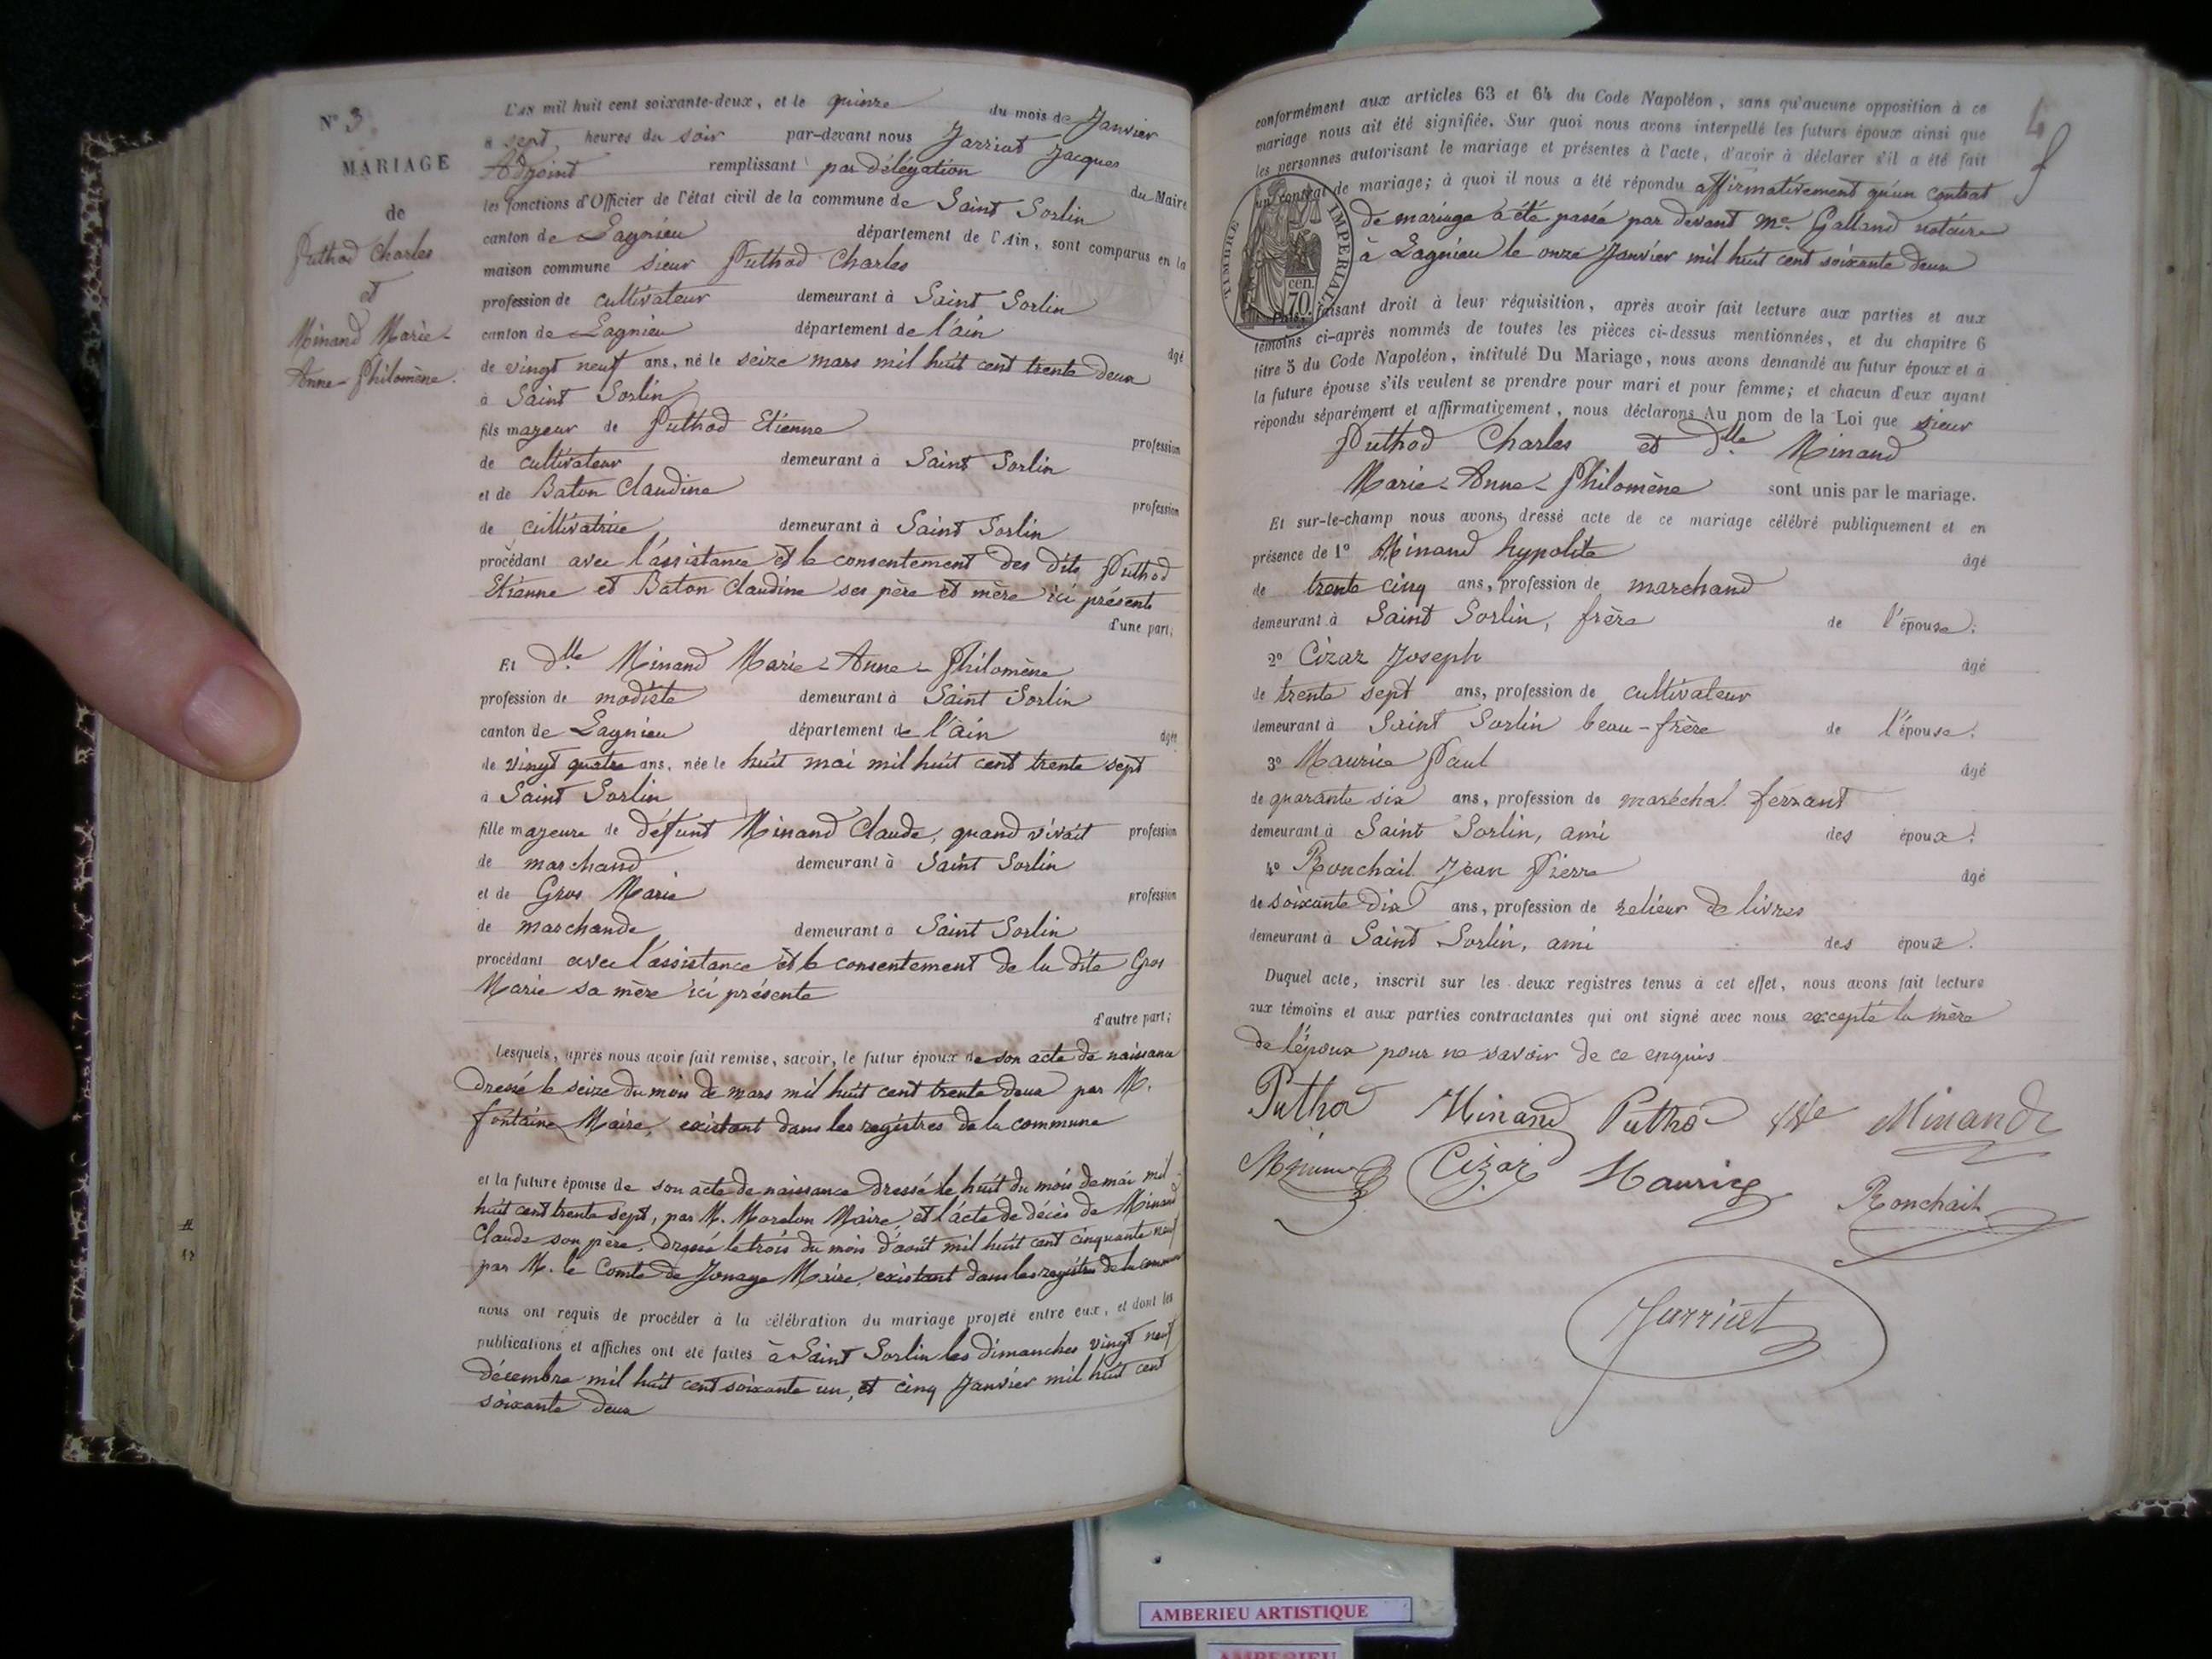 N° 3
MARIAGE
de
Puthod Charles
et
Minand Marie-
Anne-Philomène.
L'AN mil huit cent soixante-deux, et le quinze du mois de Janvier
à sept heures du soir par-devant nous Jarriat Jacques
Adjoint remplissant par délégation du Maire
les fonctions d'Officier de l'état civil de la commune de Saint Sorlin
canton de Lagnieu département de l'Ain, sont comparus en la
maison commune sieur Puthod Charles
profession de cultivateur demeurant à Saint Sorlin
canton de Lagnieu département de l'ain âgé
de vingt neuf ans, né le seize mars mil huit cent trente deux
à Saint Sorlin
fils majeur de Puthod Etienne profession
de cultivateur demeurant à Saint Sorlin
et de Baton Claudine profession
de cultivatrice demeurant à Saint Sorlin
procédant avec l'assistance et le consentement des dits Puthod
Etienne et Baton Claudine ses père et mère ici présents
d'une part;
Et Dlle Minand Marie-Anne-Philomène
profession de modiste demeurant à Saint Sorlin
canton de Lagnieu département de l'ain âgée
de vingt quatre ans, née le huit mai mil huit cent trente sept
à Saint Sorlin
fille majeure de défunt Minand Claude, quand vivait profession
de marchand demeurant à Saint Sorlin
et de Gros Marie profession
de marchande demeurant à Saint Sorlin
procédant avec l'assistance et le consentement de la dite Gros
Marie sa mère ici présente
d'autre part;
Lesquels, après nous avoir fait remise, savoir, le futur époux de son acte de naissance
dressé le seize du mois de mars mil huit cent trente deux par M.
fontaine Maire, existant dans les registres de la commune
et la future épouse de son acte de naissance dressé le huit du mois de mai mil
huit cent trente sept, par M. Morelon Maire, et l'acte de décès de Minand
Claude son père, dressé le trois du mois d'août mil huit cent cinquante neuf
par M. le Comte de Jonage Maire, existant dans les registres de la commune
nous ont requis de procéder à la célébration du mariage projeté entre eux, et dont les
publications et affiches ont été faites à Saint Sorlin les dimanches vingt neuf
décembre mil huit cent soixante un, et cinq Janvier mil huit cent
soixante deux
4
conformément aux articles 63 et 64 du Code Napoléon, sans qu'aucune opposition à ce
mariage nous ait été signifiée. Sur quoi nous avons interpellé les futurs époux ainsi que
les personnes autorisant le mariage et présentes à l'acte, d'avoir à déclarer s'il a été fait
un contrat de mariage; à quoi il nous a été répondu affirmativement qu'un contrat
de mariage a été passé par devant Me. Galland notaire
à Lagnieu le onze Janvier mil huit cent soixante deux
TIMBRE IMPERIAL
70 cen.
Puis, faisant droit à leur réquisition, après avoir fait lecture aux parties et aux
témoins ci-après nommés de toutes les pièces ci-dessus mentionnées, et du chapitre 6
titre 5 du Code Napoléon, intitulé Du Mariage, nous avons demandé au futur époux et à
la future épouse s'ils veulent se prendre pour mari et pour femme; et chacun d'eux ayant
répondu séparément et affirmativement, nous déclarons Au nom de la Loi que sieur
Puthod Charles et Dlle Minand
Marie-Anne-Philomène sont unis par le mariage.
Et sur-le-champ nous avons dressé acte de ce mariage célébré publiquement et en
présence de 1° Minand hypolite âgé
de trente cinq ans, profession de marchand
demeurant à Saint Sorlin, frère de l'épouse;
2° Cizar Joseph âgé
de trente sept ans, profession de cultivateur
demeurant à Saint Sorlin beau-frère de l'épouse;
3° Maurice Paul âgé
de quarante six ans, profession de maréchal ferrant
demeurant à Saint Sorlin, ami des époux;
4° Ronchail Jean Pierre âgé
de soixante dix ans, profession de relieur de livres
demeurant à Saint Sorlin, ami des époux.
Duquel acte, inscrit sur les deux registres tenus à cet effet, nous avons fait lecture
aux témoins et aux parties contractantes qui ont signé avec nous excepté la mère
de l'époux pour ne savoir de ce enquis
Puthod Minand Puthod Minand
Cizar Maurice Ronchail
Jarriat
AMBERIEU ARTISTIQUE
AMBERIEU